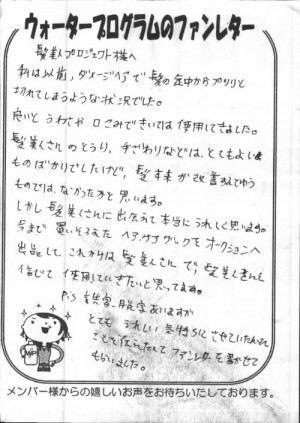 ウォータープログラムのファンレター
髪美人プロジェクト様へ
私は以前、ダメージヘアで髪の途中からプツリと
切れてしまうような状況でした。
良いとうわさや口こみできいては使用してきました。
髪美くさんのとうり、手ざわりなどは、とてもよい
ものばかりでしたけど、髪本来が改善
ものでは、なかったかと思います。
しかし髪美くさんに出会えて本当にうれしく思います。
今まで買いそろえたヘアケアグッズをオークションへ
出品して、これからは髪美くさんで、髪美くさんを
信じて使用していきたいと思ってます。
P.S 誤字、脱字ありますが
とてもうれしい気持ちにさせていただいた
ことを伝えたくてファンレターを書かせて
もらいました。
メンバー様からの嬉しいお声をお待ちいたしております。